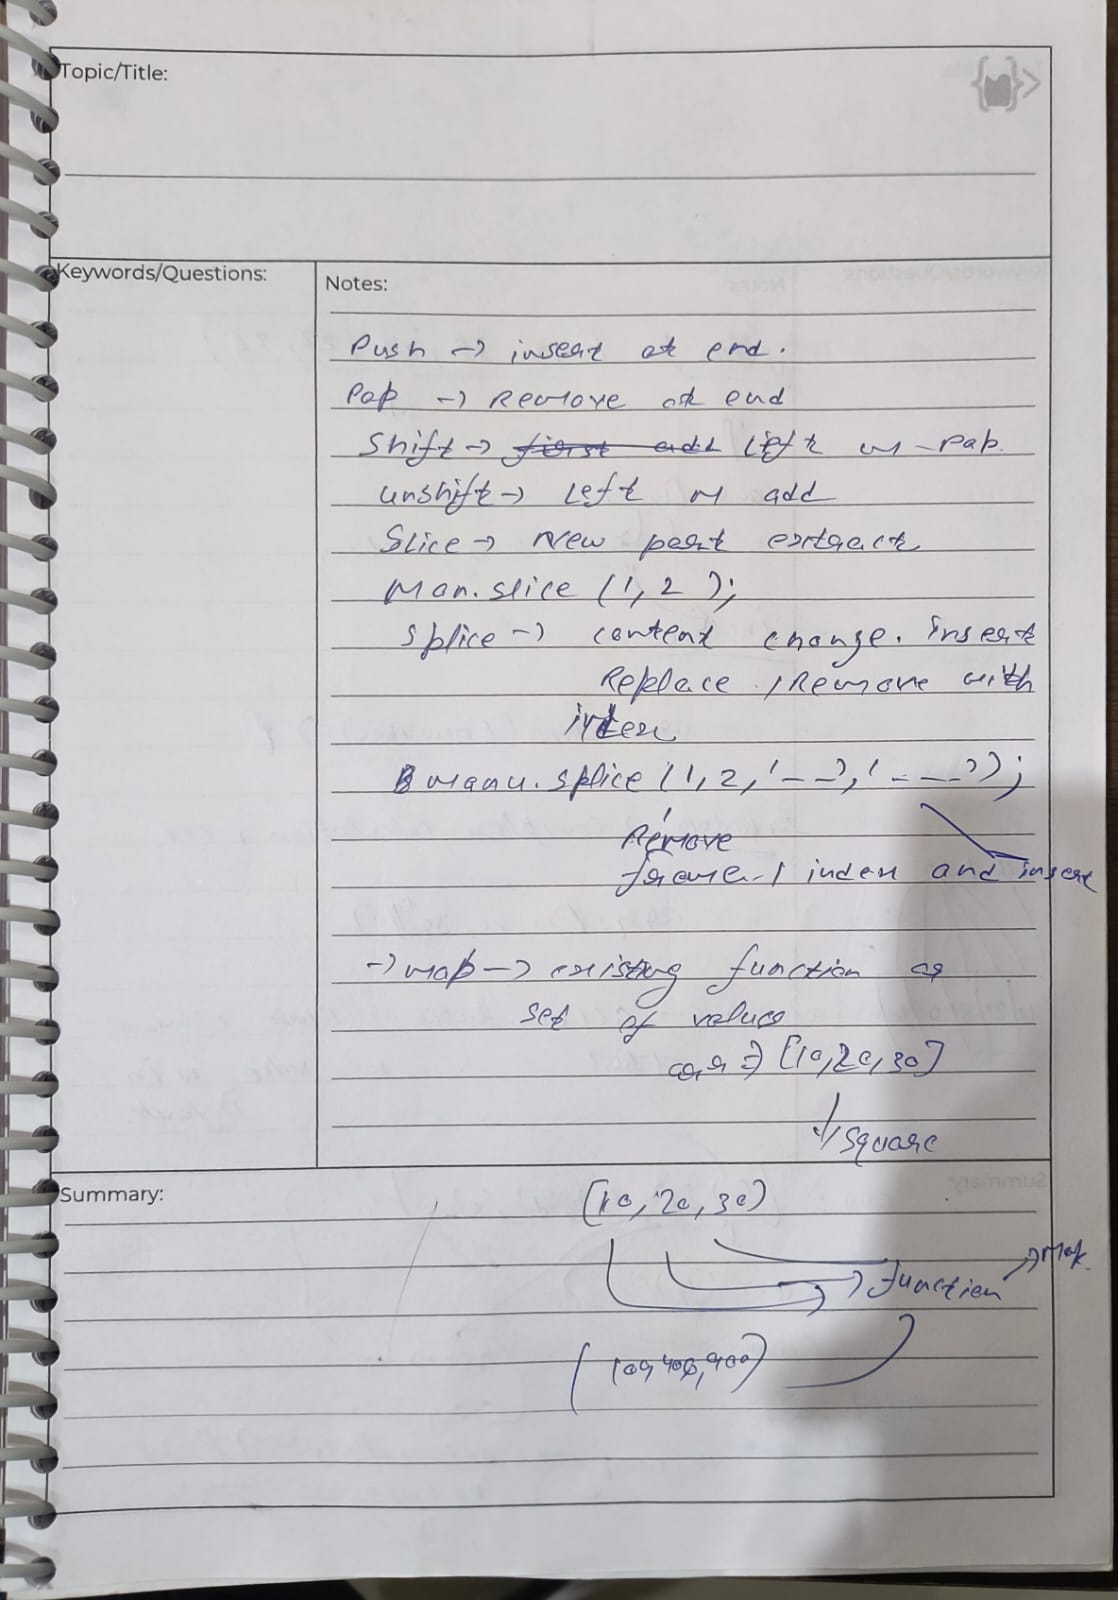 Topic/Title:
Keywords/Questions:
Notes:
Push → insert at end.
Pop → Remove at end
Shift → first add left m - Pop.
unshift → Left m add
Slice → New part extract
Man.slice (1, 2 );
Splice → content change. insert
Replace , Remove with
index
manu.splice (1, 2, '– –', '– – –');
Remove
frome 1 index and insert
→ map → existing function as
set of values
arr ⇒ [10, 20, 30]
square
Summary:
[10, 20, 30]
→ function → Map.
[100, 400, 900]